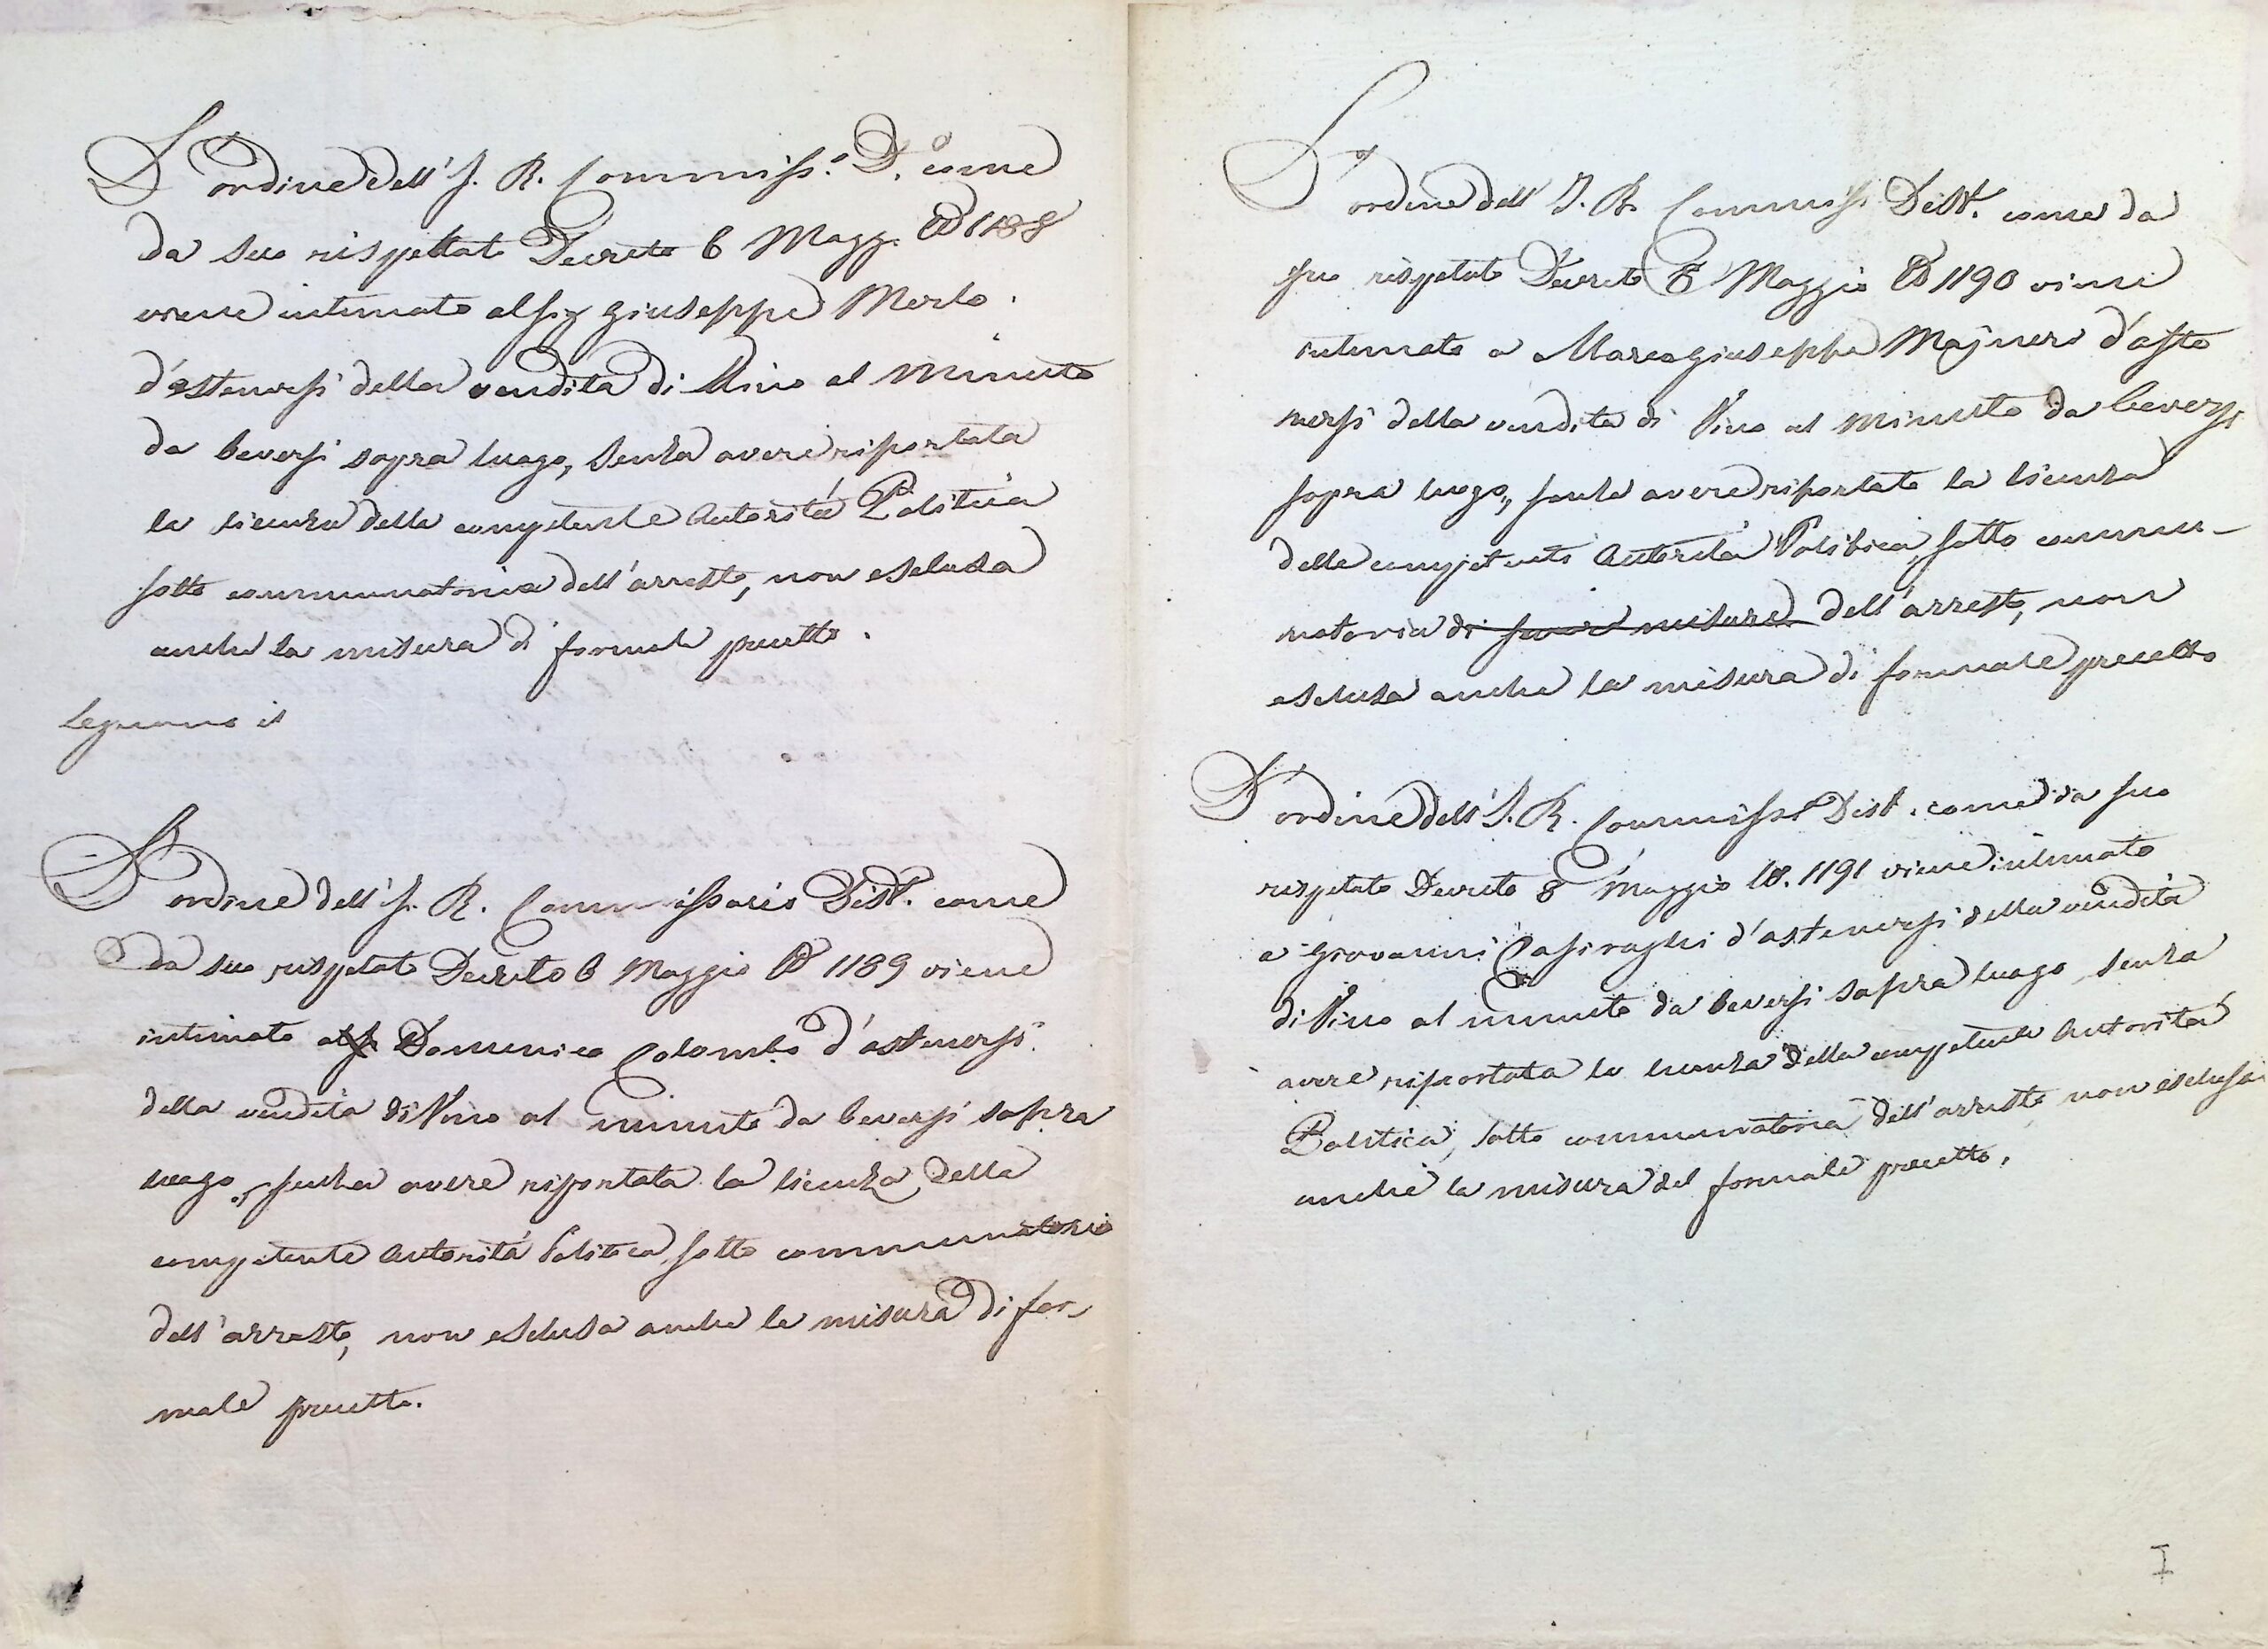 D'ordine dell'I. R. Commiss.º D.º come
da suo rispettato Decreto 6 Magg. N 1188
viene intimato al Sig Giuseppe Merlo
d'astenersi della vendita di Vino al Minuto
da beversi sopra luogo, senza avere riportata
la licenza della competente Autorità Politica
sotto comminatoria dell'arresto, non esclusa
anche la misura di formale precetto.
Legnano il
D'ordine dell'I. R. Commissario Dist. come
da suo rispetato Decreto 6 Maggio N 1189 viene
intimato al Domenico Colombo d'astenersi
della vendita di Vino al minuto da beversi sopra
luogo, senza avere riportata la licenza della
competente Autorità Politica, sotto comminatoria
dell'arresto, non esclusa anche la misura di for
male precetto.
D'ordine dell'I. R. Commiss Dist. come da
suo rispetato Decreto 8 Maggio N 1190 viene
intimato a Marcogiuseppe d'aste
nersi della vendita di Vino al minuto da beversi
sopra luogo, senza avere riportato la licenza
della competente Autorità Politica, sotto commi-
natoria di misure dell'arresto, non
esclusa anche la misura di formale precetto
D'ordine dell'I. R. Commiss Dist. come da suo
rispetato Decreto 8 Maggio N. 1191 viene intimato
a Giovanni Casiraghi d'astenersi della vendita
di Vino al minuto da beversi sopra luogo, senza
avere riportata la licenza della competente Autorità
Politica, sotto comminatoria dell'arresto non esclusa
anche la misura del formale precetto.
I